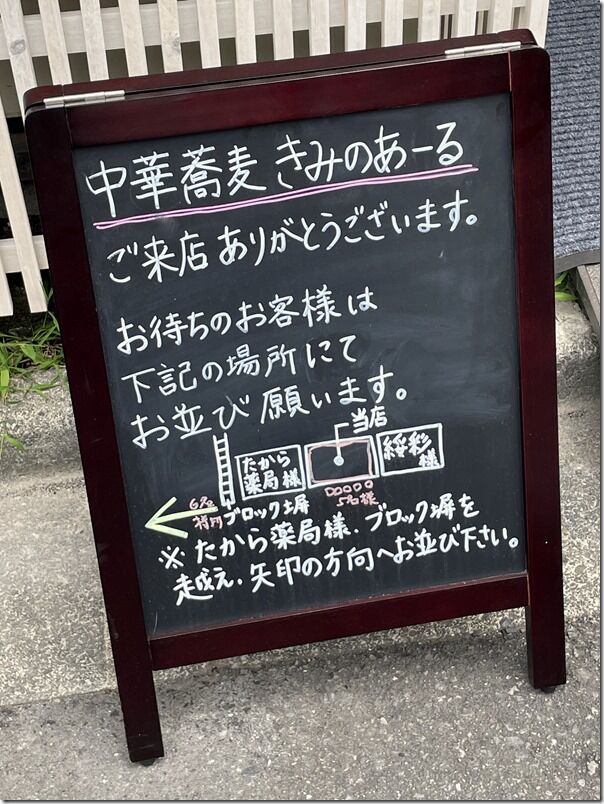 中華蕎麦 きみのあーる
ご来店ありがとうございます。
お待ちのお客様は
下記の場所にて
お並び願います。
当店
たから
薬局様
綏彩
様
5名様
6名
ブロック塀
※たから薬局様・ブロック塀を
越え、矢印の方向へお並び下さい。